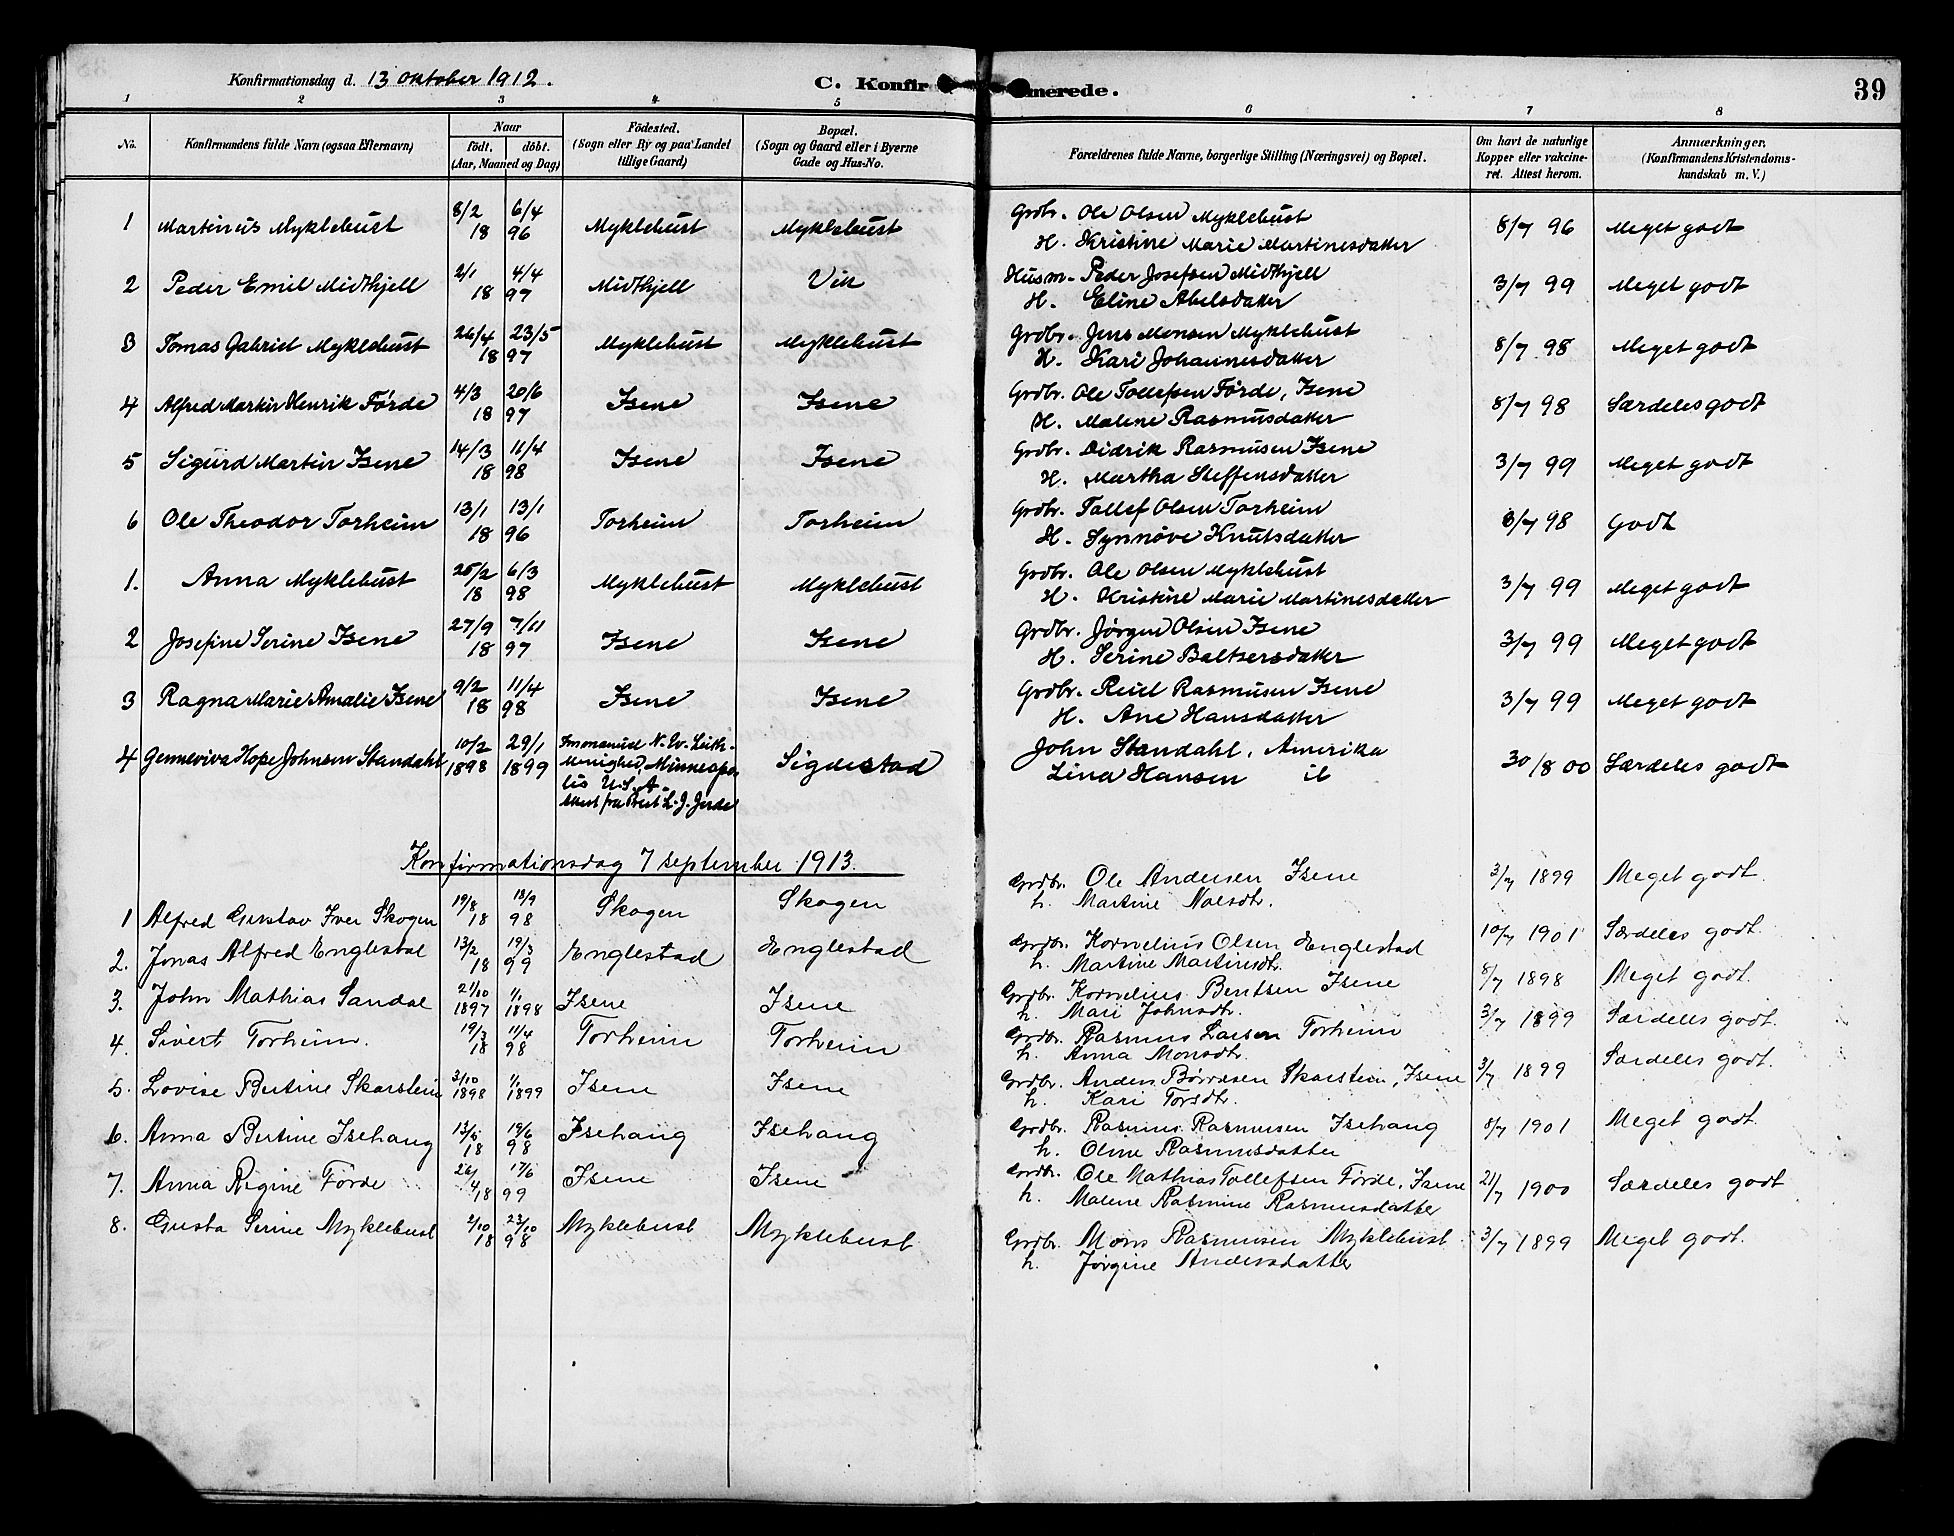 Konfirmationsdag d. 13 Oktober 1912. C. Konfirmerede. 39
1 2 3 4 5 6 7 8
No. Konfirmandens fulde Navn (ogsaa Efternavn) Naar födt. döbt. (Aar, Maaned og Dag) Födested. (Sogn eller By og paa Landet tillige Gaard) Bopæl. (Sogn og Gaard eller i Byerne Gade og Hus-No. Forældrenes fulde Navne, borgerlige Stilling (Næringsvei) og Bopæl. Om havt de naturlige Kopper eller vakcineret. Attest herom. Anmærkninger. (Konfirmandens Kristendomskundskab m. V.)
1 Martinus Myklebust 8/2 6/4 18 96 Myklebust Myklebust Grdbr. Ole Olsen Myklebust 8/7 96 Meget godt
H. Kristine Marie Martinesdatter
2 Peder Emil Midthjell 2/1 4/4 18 97 Midthjell Vik Husm. Peder Josefsen Midthjell 3/7 99 Meget godt
H. Eline Abelsdatter
3 Tomas Gabriel Myklebust 26/4 23/5 18 97 Myklebust Myklebust Grdbr. Jens Monsen Myklebust 8/7 98 Meget godt
H. Kari Johannesdatter
4 Alfred Martin Henrik Förde 4/3 20/6 18 97 Isene Isene Grdbr. Ole Tollefsen Förde, Isene 8/7 98 Særdeles godt
H. Malene Rasmusdatter
5 Sigurd Martin Isene 14/3 11/4 18 98 Isene Isene Grdbr. Didrik Rasmusen Isene 3/7 99 Meget godt
H. Martha Steffensdatter
6 Ole Theodor Torheim 13/1 13/1 18 96 Torheim Torheim Grdbr. Tollef Olsen Torheim 8/7 98 Godt
H. Synnöve Knutsdatter
1. Anna Myklebust 25/2 6/3 18 98 Myklebust Myklebust Grdbr. Ole Olsen Myklebust 3/7 99 Meget godt
H. Kristine Marie Martinesdatter
2 Josefine Serine Isene 27/9 7/11 18 97 Isene Isene Grdbr. Jörgen Olsen Isene 3/7 99 Meget godt
H. Serine Baltsersdatter
3 Ragna Marie Amalie Isene 9/2 11/4 18 98 Isene Isene Grdbr. Reiel Rasmusen Isene 3/7 99 Meget godt
H. Ane Hansdatter
4 Genneviva Hope Johnsen Standahl 10/2 1898 29/1 1899 Immanuel N. Ev. Luth. Menighed, Minneapolis U.S.A. Sigdestad John Standahl, Amerika 30/8 00 Særdeles godt
Attest fra Prest L. J. Jerde Lina Hansen ib
Konfirmationsdag 7 september 1913.
1 Alfred Gustav Iver Skogen 19/8 18/9 18 98 Skogen Skogen Grdbr. Ole Andersen Isene 3/7 1899 Meget godt
h. Martine Nolsdtr.
2. Jonas Alfred Englestad 13/2 19/3 18 99 Englestad Englestad Grdbr. Kornelius Olsen Englestad 10/7 1901 Særdeles godt.
h. Martine Martinsdtr.
3. John Mathias Sandal 21/10 1897 1/1 1898 Isene Isene Grdbr. Kornelius Bentsen Isene 8/7 1898 Meget godt.
h. Mari Johnsdtr.
4. Sivert Torheim. 19/3 11/4 18 98 Torheim Torheim Grdbr. Rasmus Larsen Torheim 3/7 1899 Særdeles godt.
h. Anna Monsdtr.
5. Lovise Bertine Skarstein 3/10 1898 1/1 1899 Isene Isene Grdbr. Anders Skarstein, Isene 3/7 1899 Særdeles godt.
h. Kari Torsdtr.
6. Anna Bertine Isehaug 19/6 18 98 Isehaug Isehaug Grdbr. Rasmus Rasmusen Isehaug 8/7 1901 Meget godt.
h. Oline Rasmusdatter
7. Anna Regine Förde 26/4 17/6 18 99 Isene Isene Grdbr. Ole Mathias Tollefsen Förde, Isene 21/7 1900 Særdeles godt
h. Malene Rasmine Rasmusdatter
8. Gusta Serine Myklebust 2/10 23/10 18 98 Myklebust Myklebust Grdbr. Mons Rasmusen Myklebust 3/7 1899 Meget godt.
h. Jörgine Andersdatter